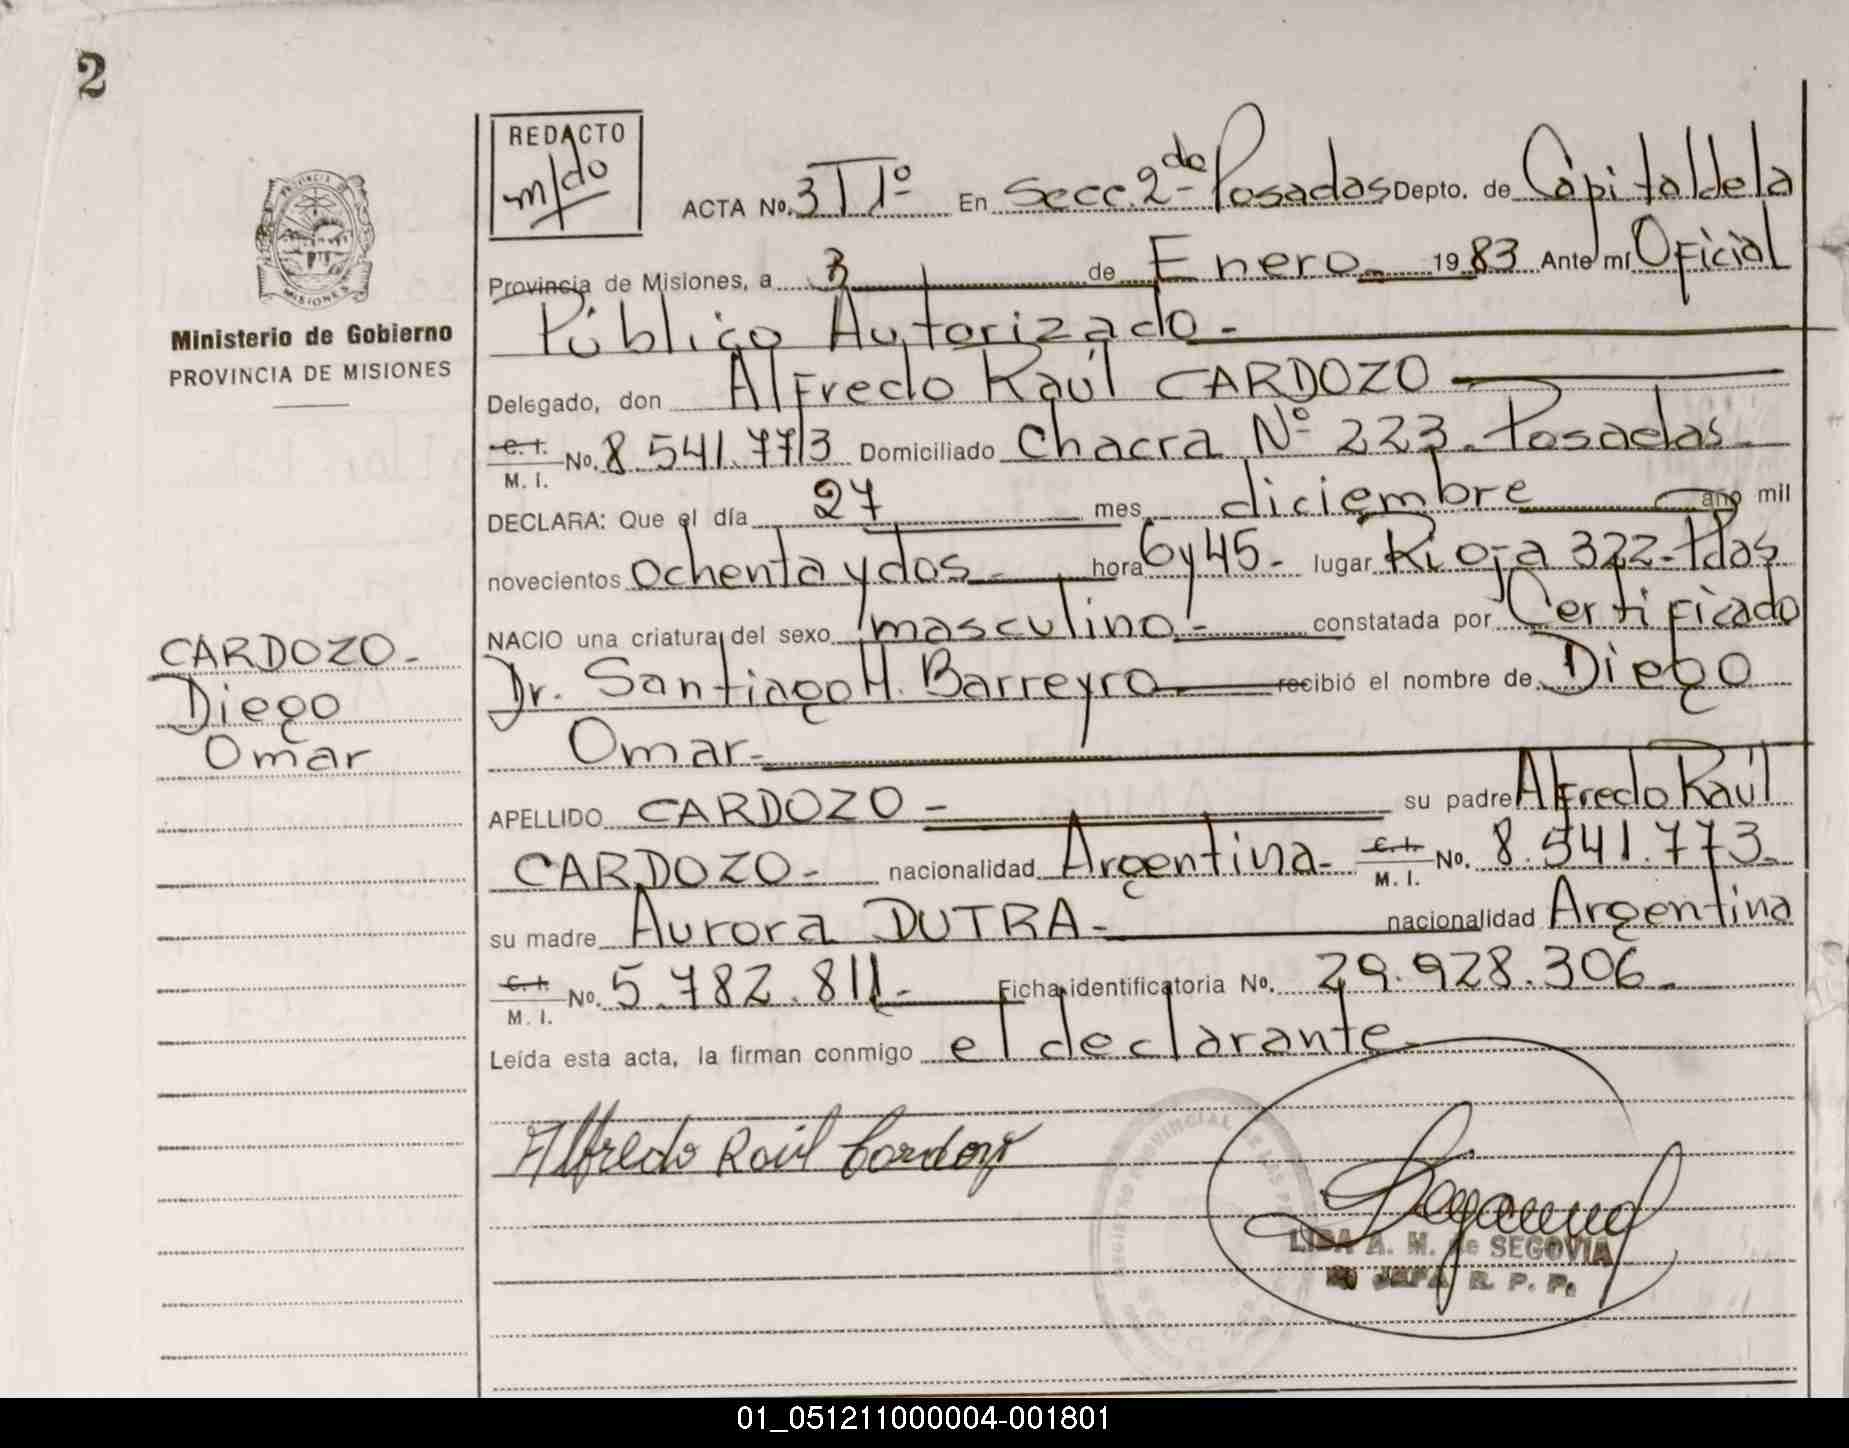 2
REDACTO
m/do
ACTA No. 3 TIº En Secc. 2da Posadas Depto. de Capital de la
Provincia de Misiones, a 3 de Enero 1983 Ante mí Oficial
Público Autorizado.-
Delegado, don Alfredo Raúl CARDOZO
C. I. M. I. No. 8.541.773 Domiciliado Chacra Nº 223-Posadas-
DECLARA: Que el día 27 mes diciembre año mil
novecientos ochenta y dos hora 6 y 45- lugar Rioja 322-Pdas
NACIO una criatura del sexo masculino- constatada por Certificado
Dr. Santiago H. Barreyro recibió el nombre de Diego
Omar-
APELLIDO CARDOZO - su padre Alfredo Raúl
CARDOZO- nacionalidad Argentina- C. I. M. I. No. 8.541.773-
su madre Aurora DUTRA- nacionalidad Argentina
C. I. M. I. No. 5.782.811- Ficha identificatoria No. 29.928.306-
Leída esta acta, la firman conmigo el declarante-
Alfredo Raúl Cardozo
LIDA A. M. de SEGOVIA
JEFA R. P. P.
PROVINCIA DE
MISIONES
Ministerio de Gobierno
PROVINCIA DE MISIONES
CARDOZO-
Diego
Omar
REGISTRO PROVINCIAL DE LAS
01_051211000004-001801